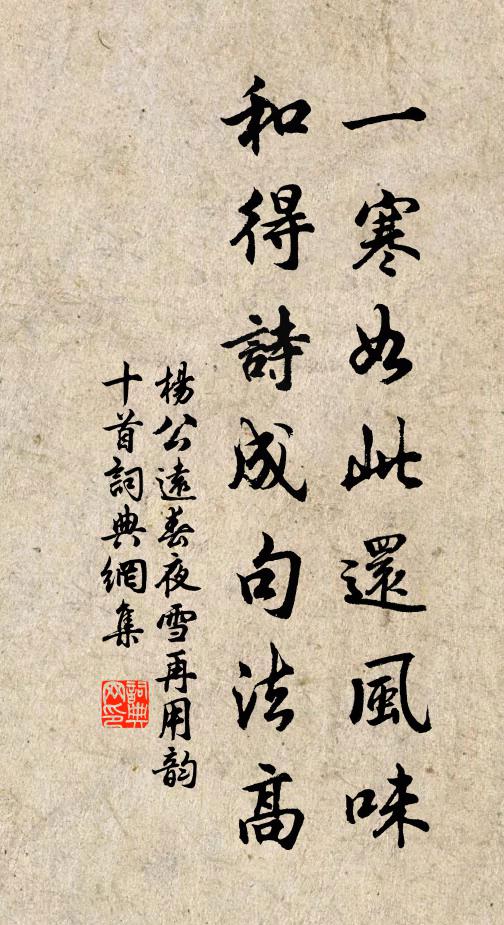 一寒如此還風味
和得詩成句法高
楊公遠春夜雪再用韵
十首詞典網集
詞典
网印